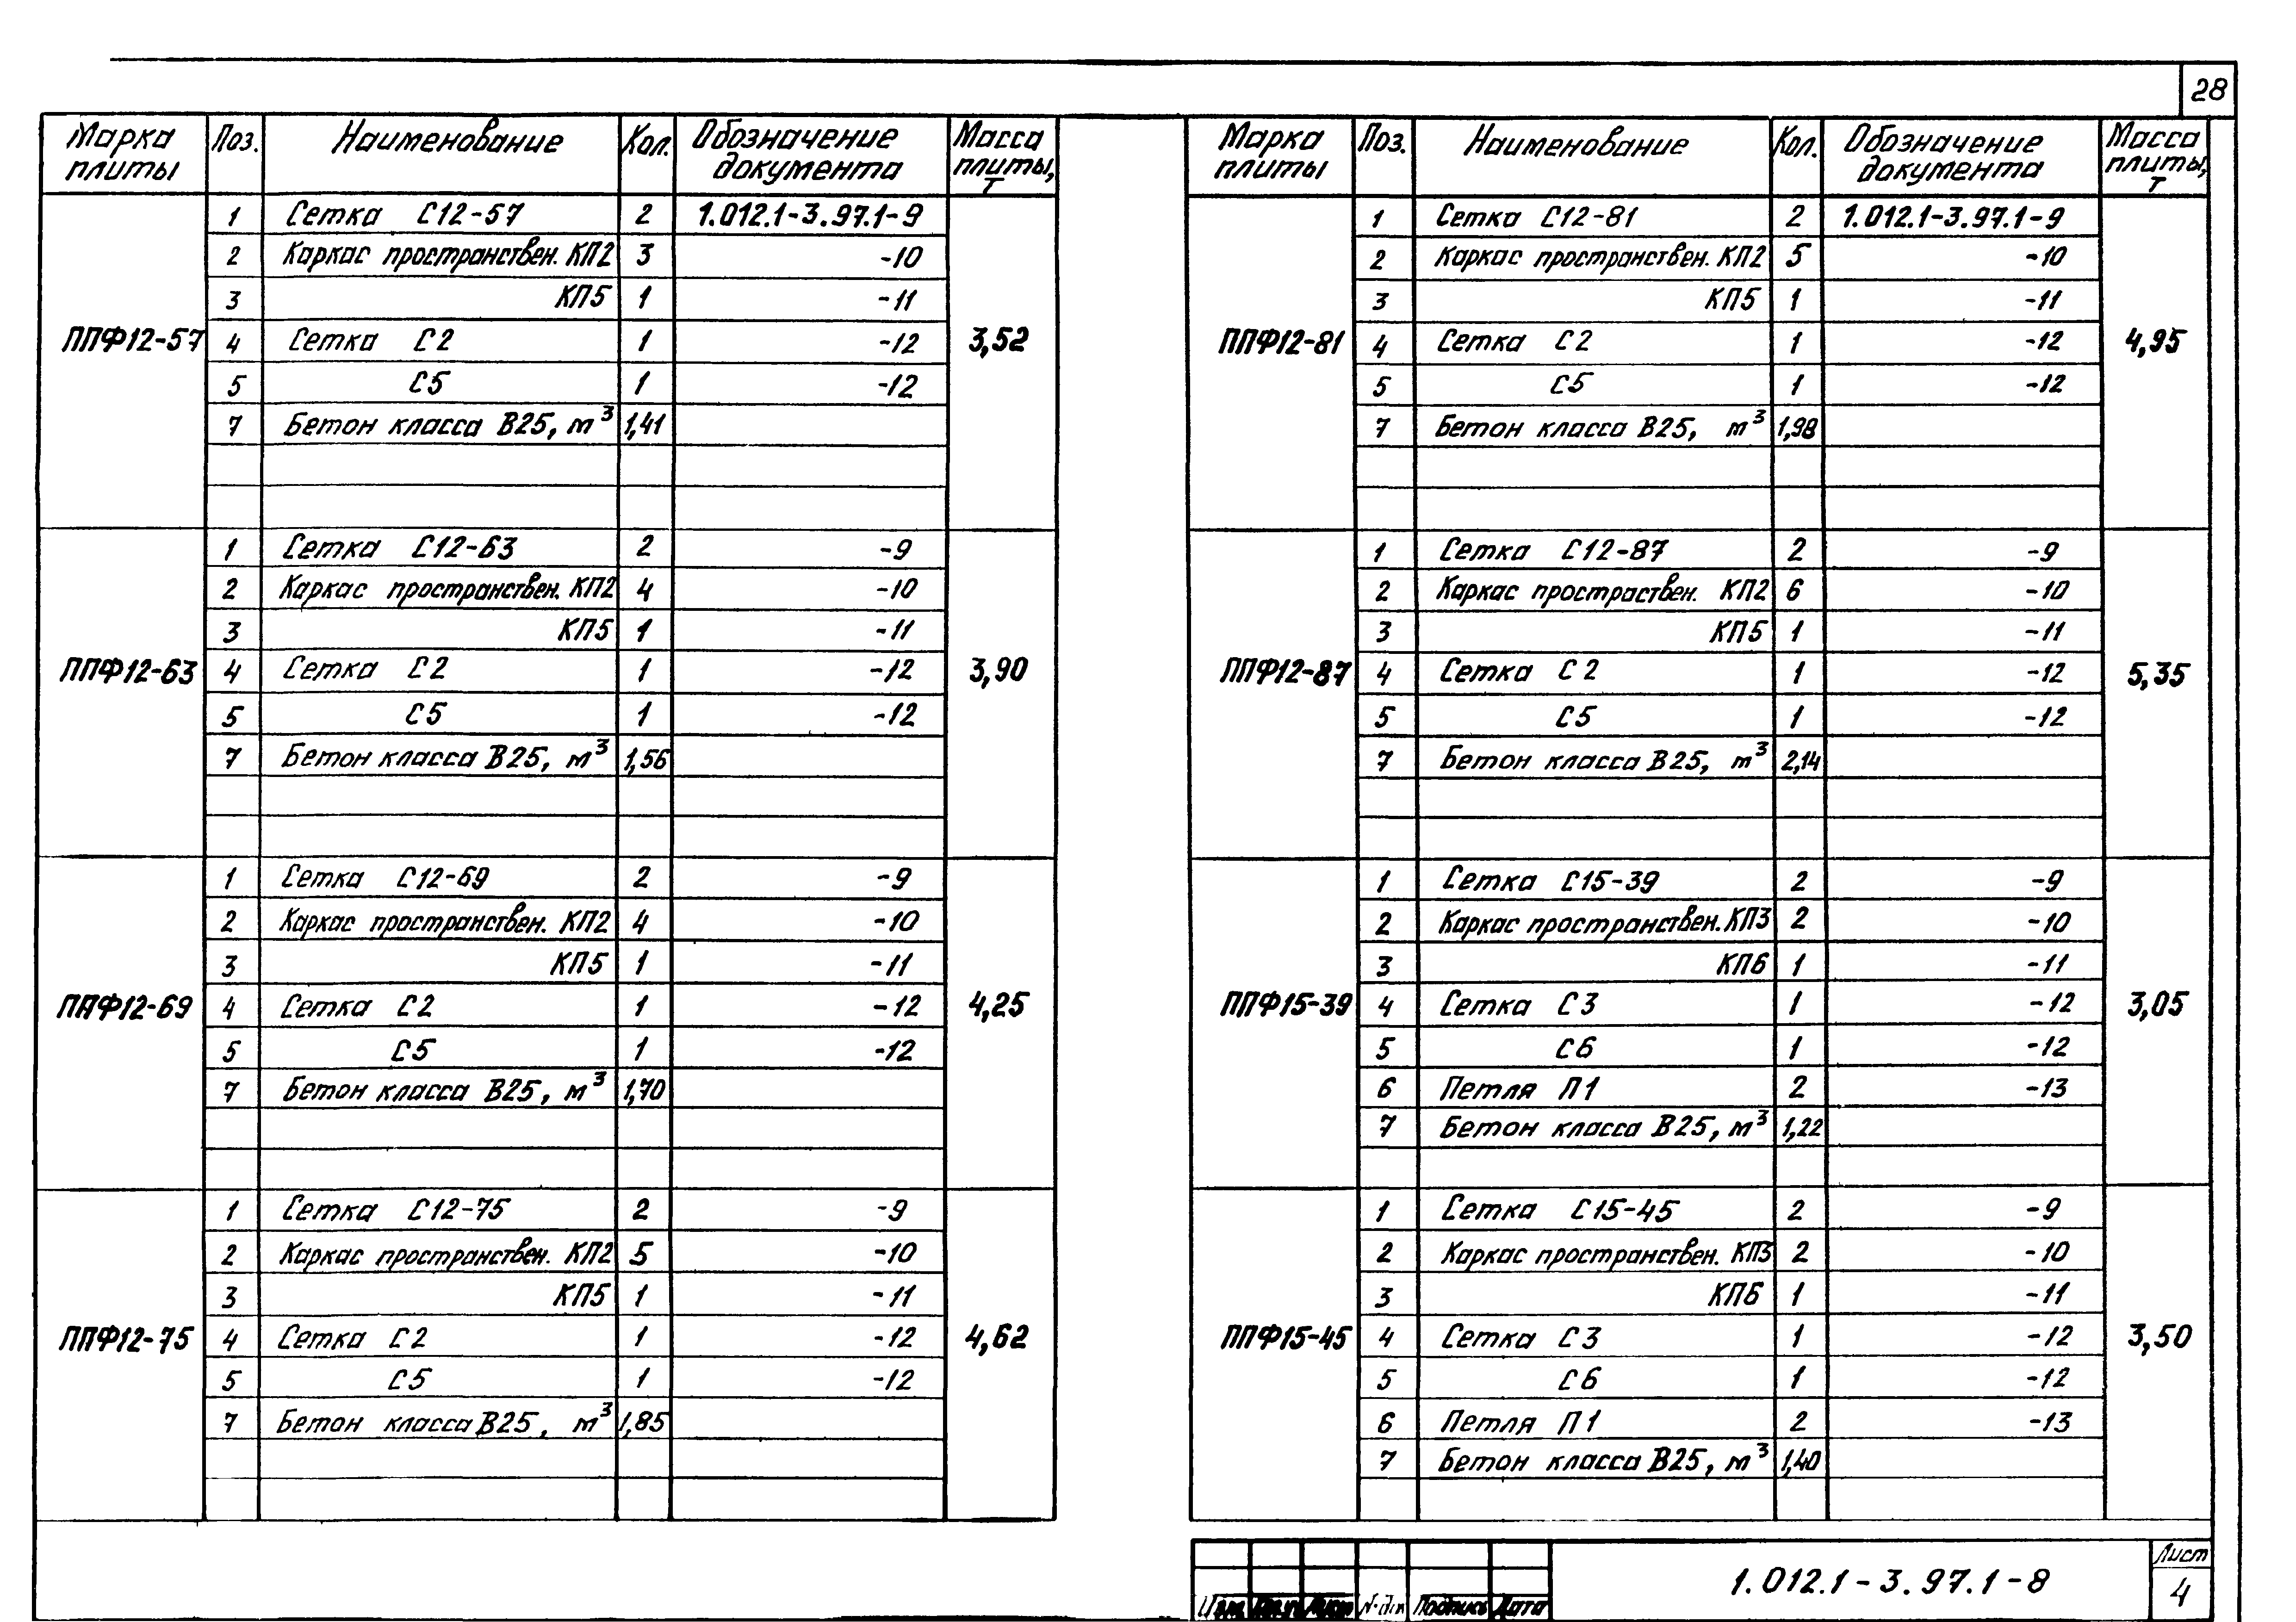 28
Марка плиты Поз. Наименование Кол. Обозначение документа Масса плиты, т
1 Сетка С12-57 2 1.012.1-3.97.1-9
2 Каркас пространствен. КП2 3 -10
3 КП5 1 -11
ППФ12-57 4 Сетка С2 1 -12 3,52
5 С5 1 -12
7 Бетон класса В25, м³ 1,41
1 Сетка С12-63 2 -9
2 Каркас пространствен. КП2 4 -10
3 КП5 1 -11
ППФ12-63 4 Сетка С2 1 -12 3,90
5 С5 1 -12
7 Бетон класса В25, м³ 1,56
1 Сетка С12-69 2 -9
2 Каркас пространствен. КП2 4 -10
3 КП5 1 -11
ППФ12-69 4 Сетка С2 1 -12 4,25
5 С5 1 -12
7 Бетон класса В25, м³ 1,70
1 Сетка С12-75 2 -9
2 Каркас пространствен. КП2 5 -10
3 КП5 1 -11
ППФ12-75 4 Сетка С2 1 -12 4,62
5 С5 1 -12
7 Бетон класса В25, м³ 1,85
Марка плиты Поз. Наименование Кол. Обозначение документа Масса плиты, т
1 Сетка С12-81 2 1.012.1-3.97.1-9
2 Каркас пространствен. КП2 5 -10
3 КП5 1 -11
ППФ12-81 4 Сетка С2 1 -12 4,95
5 С5 1 -12
7 Бетон класса В25, м³ 1,98
1 Сетка С12-87 2 -9
2 Каркас простраствен. КП2 6 -10
3 КП5 1 -11
ППФ12-87 4 Сетка С2 1 -12 5,35
5 С5 1 -12
7 Бетон класса В25, м³ 2,14
1 Сетка С15-39 2 -9
2 Каркас пространствен. КП3 2 -10
3 КП6 1 -11
ППФ15-39 4 Сетка С3 1 -12 3,05
5 С6 1 -12
6 Петля П1 2 -13
7 Бетон класса В25, м³ 1,22
1 Сетка С15-45 2 -9
2 Каркас пространствен. КП3 2 -10
3 КП6 1 -11
ППФ15-45 4 Сетка С3 1 -12 3,50
5 С6 1 -12
6 Петля П1 2 -13
7 Бетон класса В25, м³ 1,40
Изм. Лист Подпись Дата
1.012.1-3.97.1-8
Лист
4